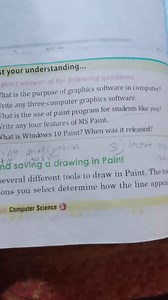 st your understanding...
short answer of the following questions:
hat is the purpose of graphics software in computer?
rite any three-computer graphics software.
hat is the use of paint program for students like you?
rite any four features of MS Paint.
hat is Windows 10 Paint? When was it released?
nd saving a drawing in Paint
several different tools to draw in Paint. The to
ons you select determine how the line appe
Computer Science